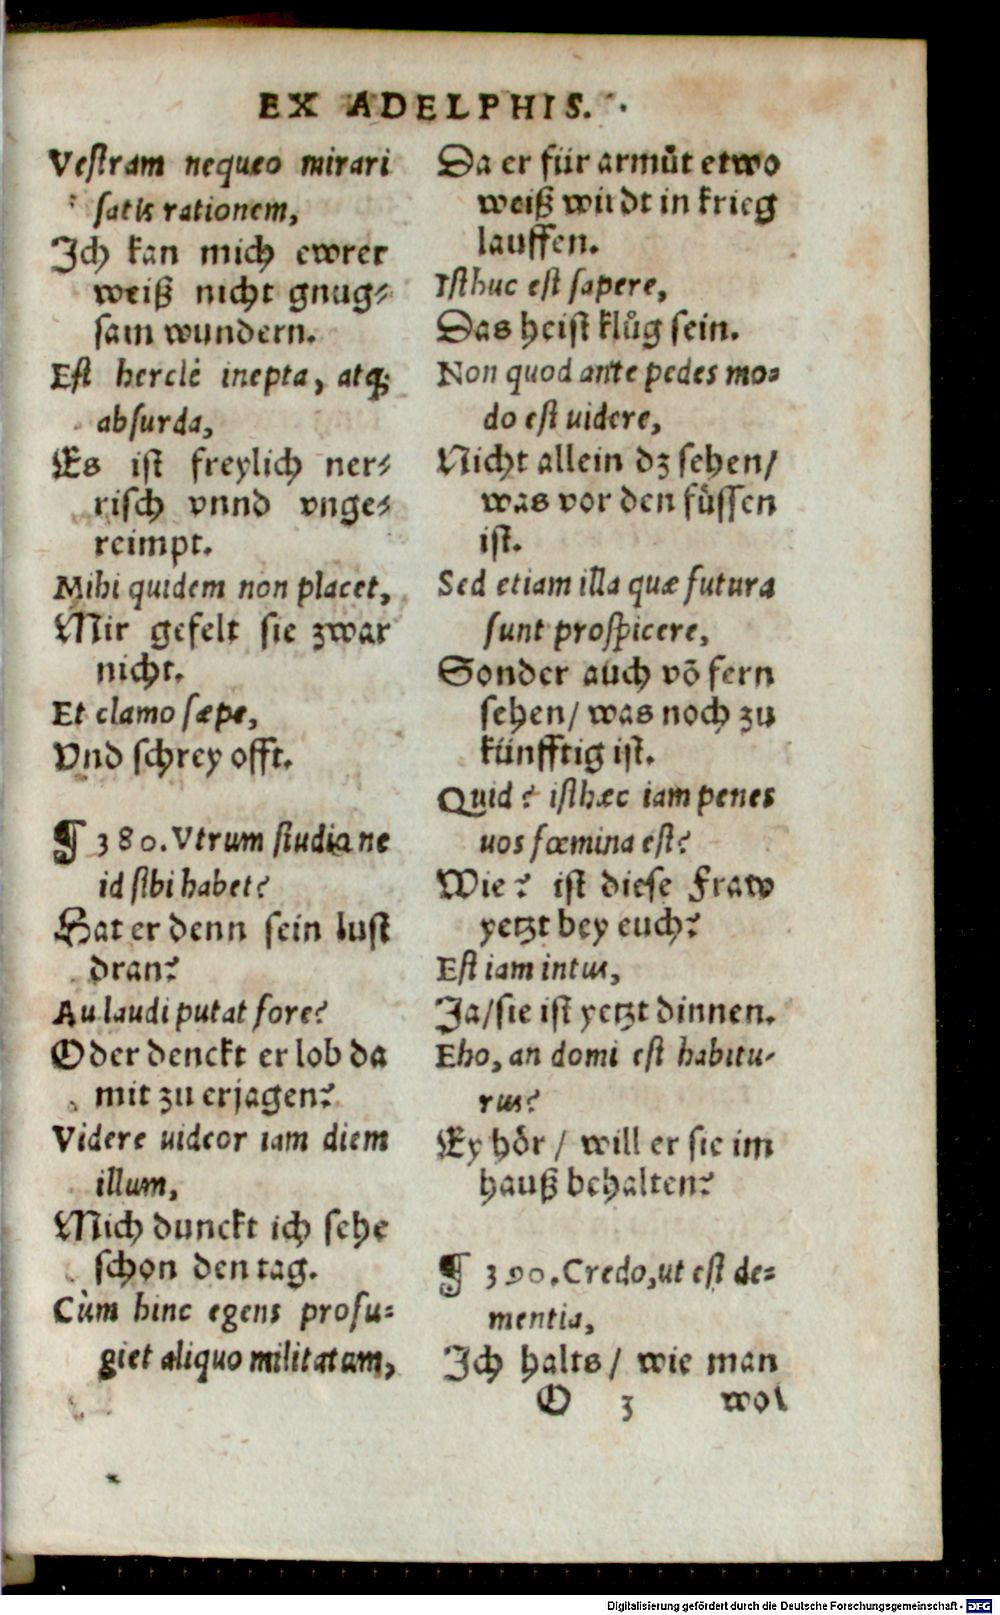 EX ADELPHIS.
Vestram nequeo mirari
satis rationem,
Ich kan mich ewrer
weiß nicht gnug⸗
sam wundern.
Est herclè inepta, atq;
absurda,
Es ist freylich ner⸗
risch vnnd vnge⸗
reimpt.
Mihi quidem non placet,
Mir gefelt sie zwar
nicht.
Et clamo sæpe,
Vnd schrey offt.
¶ 380. Vtrum studia ne
id sibi habet?
Hat er denn sein lust
dran?
Au laudi putat fore?
Oder denckt er lob da
mit zu erjagen?
Videre uideor iam diem
illum,
Mich dunckt ich sehe
schon den tag.
Cùm hinc egens profu⸗
giet aliquo militatum,
Da er für armůt etwo
weiß wirdt in krieg
lauffen.
Isthuc est sapere,
Das heist klůg sein.
Non quod ante pedes mo⸗
do est uidere,
Nicht allein dz sehen/
was vor den füssen
ist.
Sed etiam illa quæ futura
sunt prospicere,
Sonder auch võ fern
sehen/ was noch zu
künfftig ist.
Quid? isthæc iam penes
uos fœmina est?
Wie? ist diese Fraw
yetzt bey euch?
Est iam intus,
Ja/sie ist yetzt dinnen.
Eho, an domi est habitu⸗
rus?
Ey hör / will er sie im
hauß behalten?
¶ 390. Credo, ut est de⸗
mentia,
Ich halts / wie man
O 3 wol
Digitalisierung gefördert durch die Deutsche Forschungsgemeinschaft - DFG